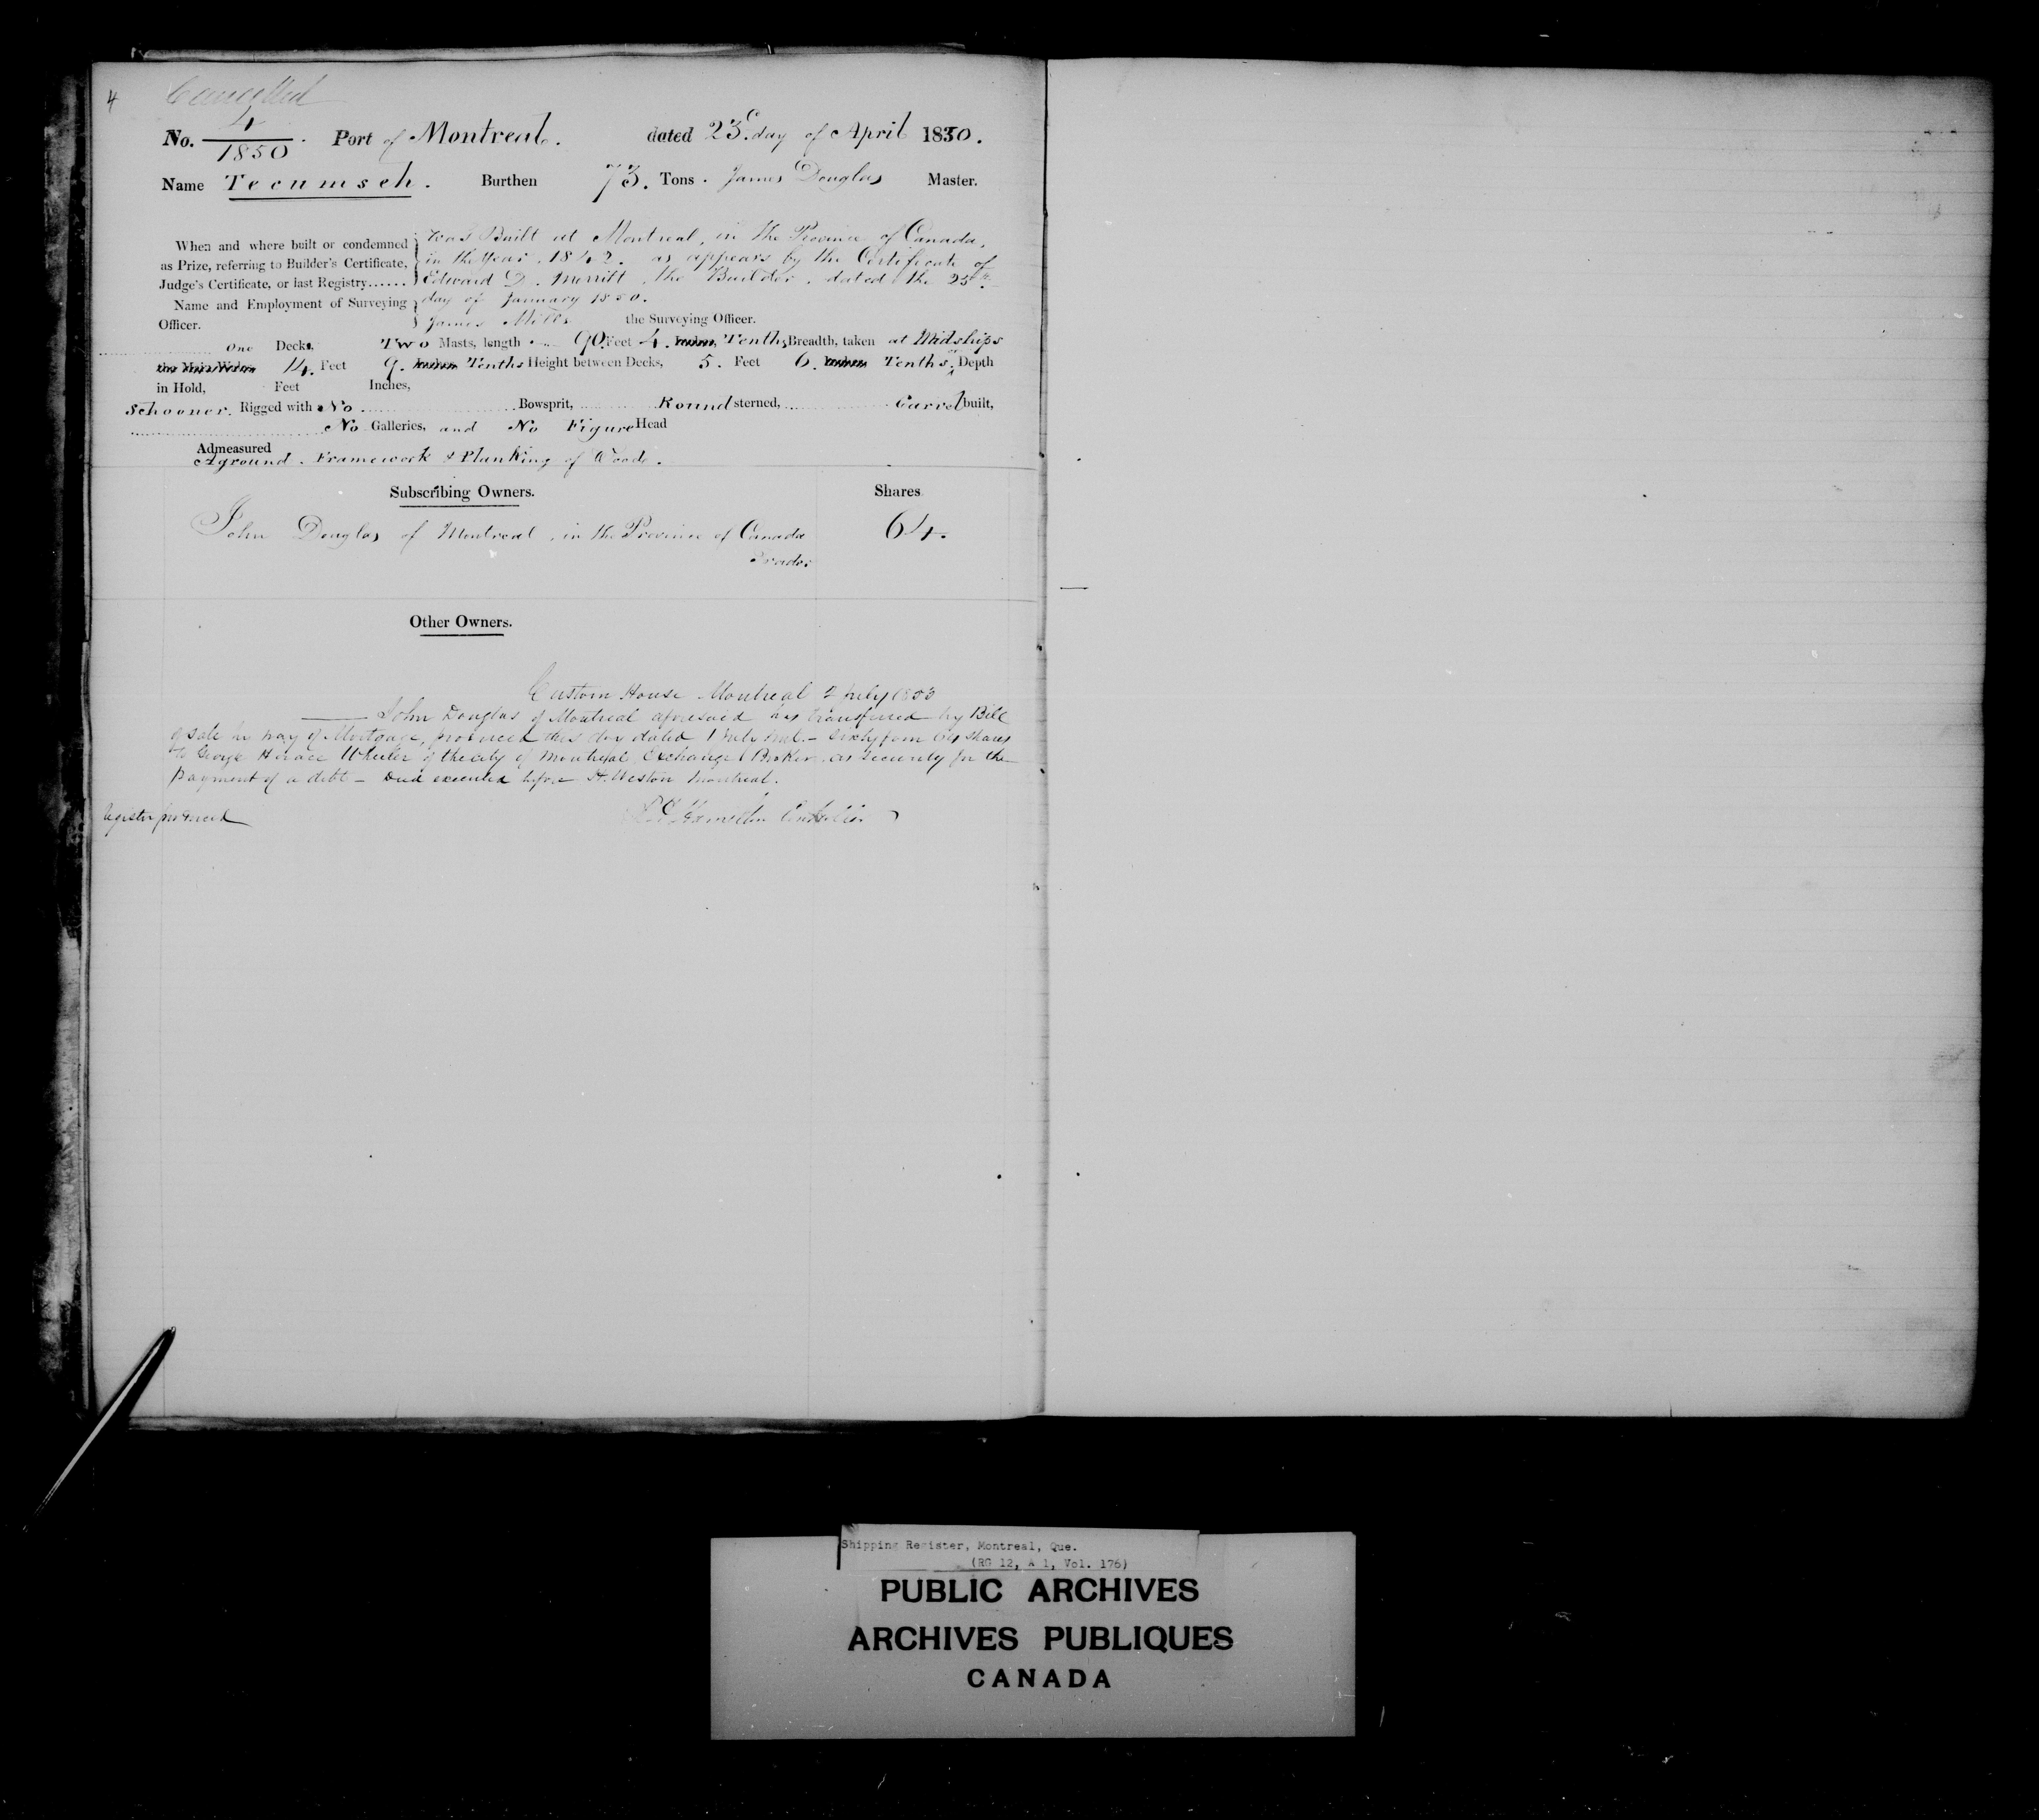 4
Cancelled
No. 4/1850. Port of Montreal. dated 23d. day of April 1850.
Name Tecumseh. Burthen 73. Tons. James Douglas Master.
When and where built or condemned as Prize, referring to Builder's Certificate, Judge's Certificate, or last Registry......
Was Built at Montreal, in the Province of Canada,
in the Year 1842. as appears by the Certificate of
Edward D. Merritt, the Builder, dated the 25th
day of January 1850.
Name and Employment of Surveying Officer.
James Mills the Surveying Officer.
One Decks, Two Masts, length 90. Feet 4. Inches, Tenths, Breadth, taken at Midships
14. Feet 9. Inches Tenths Height between Decks, 5. Feet 6. Inches Tenths, or Depth
in Hold, Feet Inches,
Schooner. Rigged with No Bowsprit, Round sterned, Carvel built,
No Galleries, and No Figure Head
Admeasured
Aground. Framework & Planking of Wood.
Subscribing Owners. Shares
John Douglas of Montreal, in the Province of Canada 64.
Trader
Other Owners.
Custom House Montreal 2 July 1853
John Douglas of Montreal aforesaid has transferred by Bill
of Sale by way of Mortgage, produced this day dated 1 July Inst. - Sixty four 64 shares
to George Horace Wheeler of the city of Montreal Exchange Broker as security for the
payment of a debt - Deed executed before H. Weston Montreal.
Register produced
Hamilton
Shipping Register, Montreal, Que.
(RG 12, A 1, Vol. 176)
PUBLIC ARCHIVES
ARCHIVES PUBLIQUES
CANADA